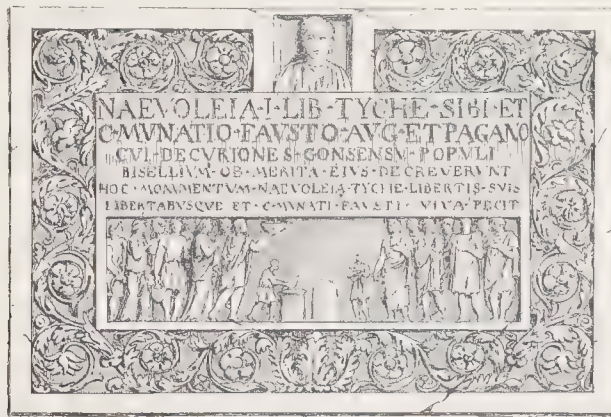 NAEVOLEIA·I·LIB·TYCHE·SIBI·ET
C·MVNATIO·FAVSTO·AVG·ET PAGANO
CVI·DECVRIONES·CONSENSV·POPVLI
BISELLIVM·OB·MERITA·EIVS·DECREVERVNT
HOC·MONIMENTVM·NAEVOLEIA·TYCHE·LIBERTIS·SVIS
LIBERTABVSQVE ET·C·MVNATI·FAVSTI·VIVA·FECIT